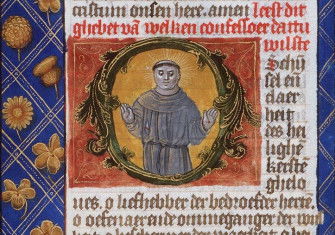 cristum onsen here. amen leest dit
ghebet vā welken confessoer dattu
wilste
Schij
sel en
daer
heit
des hei
lighē
kerstē
ghelo
ues. o liefhebber der bedroefder herte.
o oefenaer ende ommeganger der